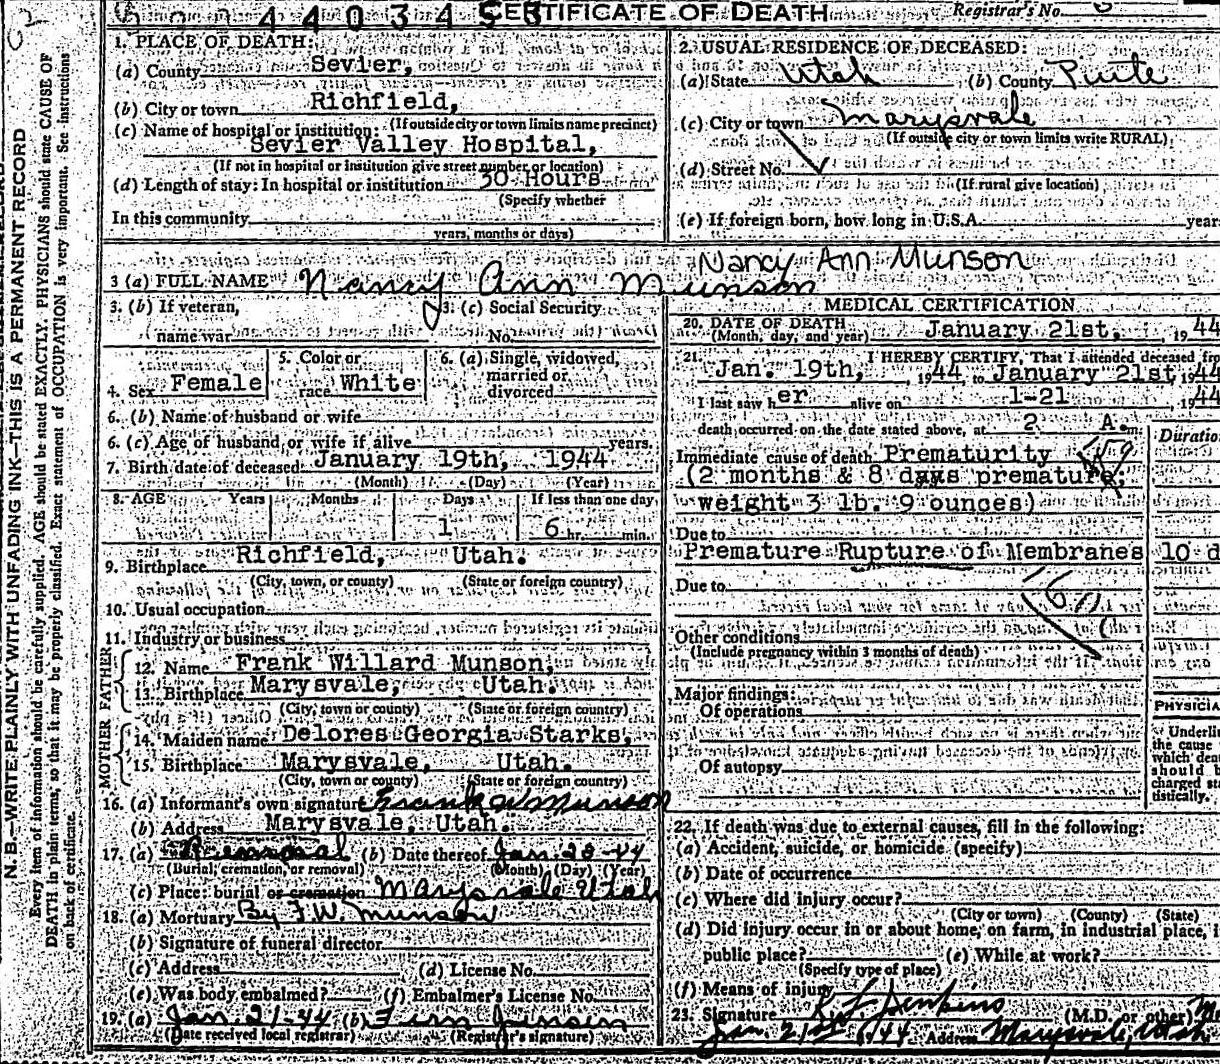 4 4 0 3 4 5 CERTIFICATE OF DEATH Registrar's No.
N. B.—WRITE PLAINLY WITH UNFADING INK—THIS IS A PERMANENT RECORD
Every item of information should be carefully supplied. AGE should be stated EXACTLY. PHYSICIANS should state CAUSE OF
DEATH in plain terms, so that it may be properly classified. Exact statement of OCCUPATION is very important. See instructions
on back of certificate.
1. PLACE OF DEATH:
(a) County Sevier,
(b) City or town Richfield,
(If outside city or town limits name precinct)
(c) Name of hospital or institution:
Sevier Valley Hospital,
(If not in hospital or institution give street number or location)
(d) Length of stay: In hospital or institution 30 Hours
(Specify whether
In this community
years, months or days)
2. USUAL RESIDENCE OF DECEASED:
(a) State Utah (b) County Piute
(c) City or town Marysvale
(If outside city or town limits write RURAL)
(d) Street No.
(If rural give location)
(e) If foreign born, how long in U.S.A. years
Nancy Ann Munson
3 (a) FULL NAME Nancy Ann Munson
3. (b) If veteran,
name war
3. (c) Social Security
No.
4. Sex Female
5. Color or
race White
6. (a) Single, widowed,
married or
divorced
6. (b) Name of husband or wife
6. (c) Age of husband or wife if alive years.
7. Birth date of deceased January 19th, 1944
(Month) (Day) (Year)
8. AGE Years Months Days If less than one day
1 6 hr. min.
9. Birthplace Richfield, Utah.
(City, town, or county) (State or foreign country)
10. Usual occupation
11. Industry or business
FATHER
12. Name Frank Willard Munson,
13. Birthplace Marysvale, Utah.
(City, town or county) (State or foreign country)
MOTHER
14. Maiden name Delores Georgia Starks,
15. Birthplace Marysvale, Utah.
(City, town or county) (State or foreign country)
16. (a) Informant's own signature Frank W Munson
(b) Address Marysvale, Utah.
17. (a) Removal (b) Date thereof Jan. 23-44
(Burial, cremation, or removal) (Month) (Day) (Year)
(c) Place: burial or cremation Marysvale Utah
18. (a) Mortuary By F.W. Munson
(b) Signature of funeral director
(c) Address (d) License No.
(e) Was body embalmed? (f) Embalmer's License No.
19. (a) Jan 21-44 (b) Fern Jensen
(Date received local registrar) (Registrar's signature)
MEDICAL CERTIFICATION
20. DATE OF DEATH January 21st, 1944
(Month, day, and year)
21. I HEREBY CERTIFY, That I attended deceased from
Jan. 19th, 1944 to January 21st, 1944
I last saw her alive on 1-21 1944
death occurred on the date stated above, at 2 A m.
Duration
Immediate cause of death Prematurity 159
(2 months & 8 days premature;
weight 3 lb. 9 ounces)
Due to
Premature Rupture of Membranes 10 d
Due to
Other conditions
(Include pregnancy within 3 months of death)
Major findings:
Of operations
Of autopsy
PHYSICIA
Underli
the cause
which dea
should b
charged sta
tistically.
22. If death was due to external causes, fill in the following:
(a) Accident, suicide, or homicide (specify)
(b) Date of occurrence
(c) Where did injury occur?
(City or town) (County) (State)
(d) Did injury occur in or about home, on farm, in industrial place, i
public place? (e) While at work?
(Specify type of place)
(f) Means of injury
23. Signature Jenkins (M.D. or other) M
Jan. 21st 1944 Address Marysvale, Utah